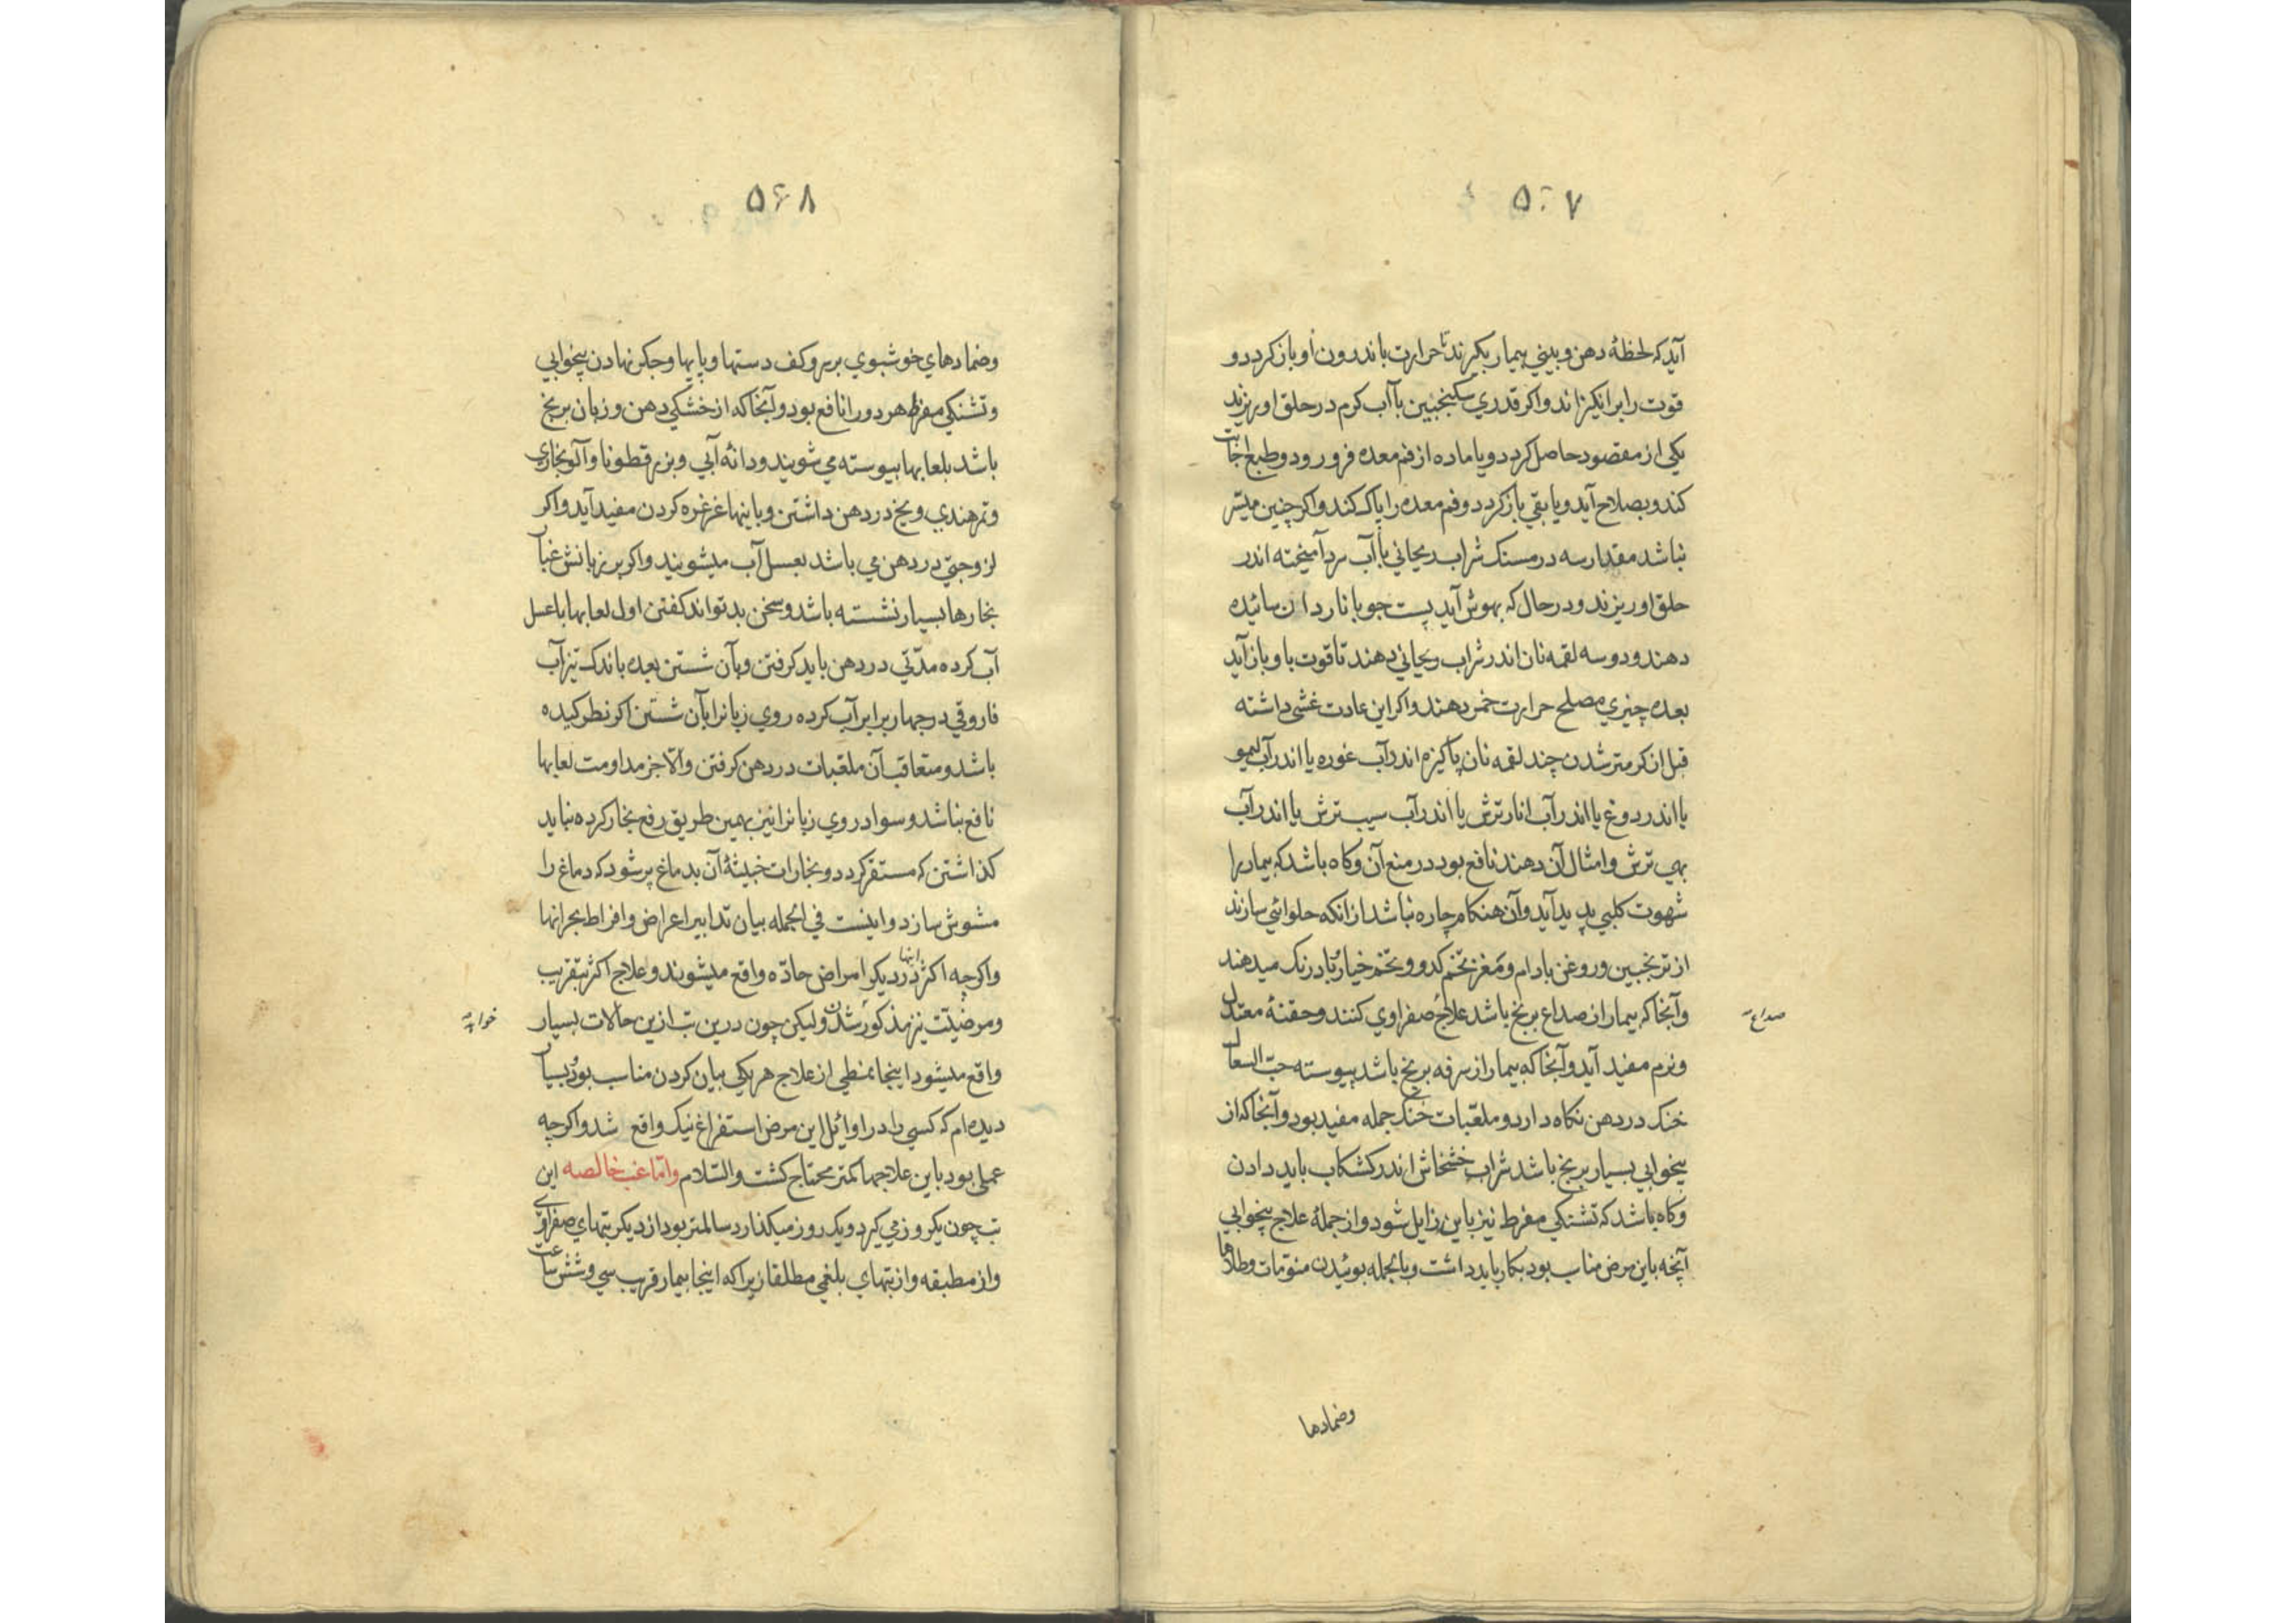 ۵۶۷
آید که لحظهٔ دهن و بینی بیمار بکیرند تا حرارت باندرون او باز کردد و
قوت را برانکیزاند و اکر قدری سکنجبین با آب کرم در حلق او ریزند
یکی از مقصود حاصل کردد و یا ماده از فم معده فرو رود و طبع اجابت
کند و بصلاح آید و یا بقی باز کردد و فم معده را پاک کند و اکر چنین میسّر
نباشد مقدار سه درمسنک شراب ریحانی با آب سرد آمیخته اندر
حلق او ریزند و در حال که بهوش آید پست جو با ناردان سائیده
دهند و دو سه لقمه نان اندر شراب ریحانی دهند تا قوت با و باز آید
بعده چیزی مصلح حرارت خمر دهند و اکر این عادت غشی داشته
قبل از کرمتر شدن چند لقمه نان پاکیزه اندر آب غوره یا اندر آب لیمو
یا اندر دوغ یا اندر آب انار ترش یا اندر آب سیب ترش یا اندر آب
بهی ترش و امثال آن دهند نافع بود در منع آن و کاه باشد که بیمار را
شهوت کلبی پدید آید و آن هنکام چاره نباشد از انکه حلوائی سازند
از ترنجبین و روغن بادام و مغز تخم کدو و تخم خیار بادرنک میدهند
و آنجا که بیمار از صداع برنج باشد علاج صفراوی کنند و حقنهٔ معتدل
صداع
و نرم مفید آید و آنجا که بیمار از سرفه برنج باشد پیوسته حبّ السعال
خنک در دهن نکاه دارد و ملعّبات خنک جمله مفید بود و آنجا که از
بیخوابی بسیار برنج باشد شراب خشخاش اندر کشکاب باید دادن
و کاه باشد که تشنکی مفرط نیز باین زایل شود و از جملهٔ علاج بیخوابی
آنچه باین مرض مناسب بود بکار باید داشت و بالجمله بوئیدن منوّمات و طلاها
وضمادها
۵۶۸
وضمادهای خوشبوی بر سر و کف دستها و پایها و جکر نهادن بیخوابی
و تشنکی مفرط هر دو را نافع بود و آنجا که از خشکی دهن و زبان برنج
باشد بلعابها پیوسته می شویند و دانهٔ آبی و بزرقطونا و آلو بخاری
و تمر هندی و یخ در دهن داشتن و باینها غرغره کردن مفید آید و اکر
لزوجتی در دهن می باشد بعسل آب میشویند و اکر بر زبانش غبار
بخارها بسیار نشسته باشد و سخن بد تواند کفتن اول لعابها با عسل
آب کرده مدّتی در دهن باید کرفتن و بآن شستن بعده باندک تیزآب
فاروقی در چهار برابر آب کرده روی زبانرا بآن شستن اکر نطرکیده
باشد و متعاقب آن ملعّبات در دهن کرفتن و الّا جز مداومت لعابها
نافع نباشد و سواد روی زبانرا نیز بهمین طریق رفع بخار کرده نباید
کذاشتن که مستقر کردد و بخارات خبیثهٔ آن بدماغ بر شود که دماغ را
مشوش سازد و اینست فی الجمله بیان تدابیر اعراض و افراط بحرانها
و اکرچه اکثر اینها در دیکر امراض حادّه واقع میشوند و علاج اکثر بتقریب
و مرضیّت نیز مذکور شدن ولیکن چون درین تب ازین حالات بسیار
واقع میشود اینجا نمطی از علاج هر یکی بیان کردن مناسب بود بسیار
دیده ام که کسی را در اوائل این مرض استفراغ نیک واقع شد و اکرچه
عملی بود باین علاجها کمتر محتاج کشت والسّلام وامّا غبّ خالصه این
تب چون یکروز می کیرد و یک روز میکذارد سالمتر بود از دیکر تبهای صفراوی
و از مطبقه و از تبهای بلغمی مطلقا زیرا که اینجا بیمار قریب سی و شش ساعت